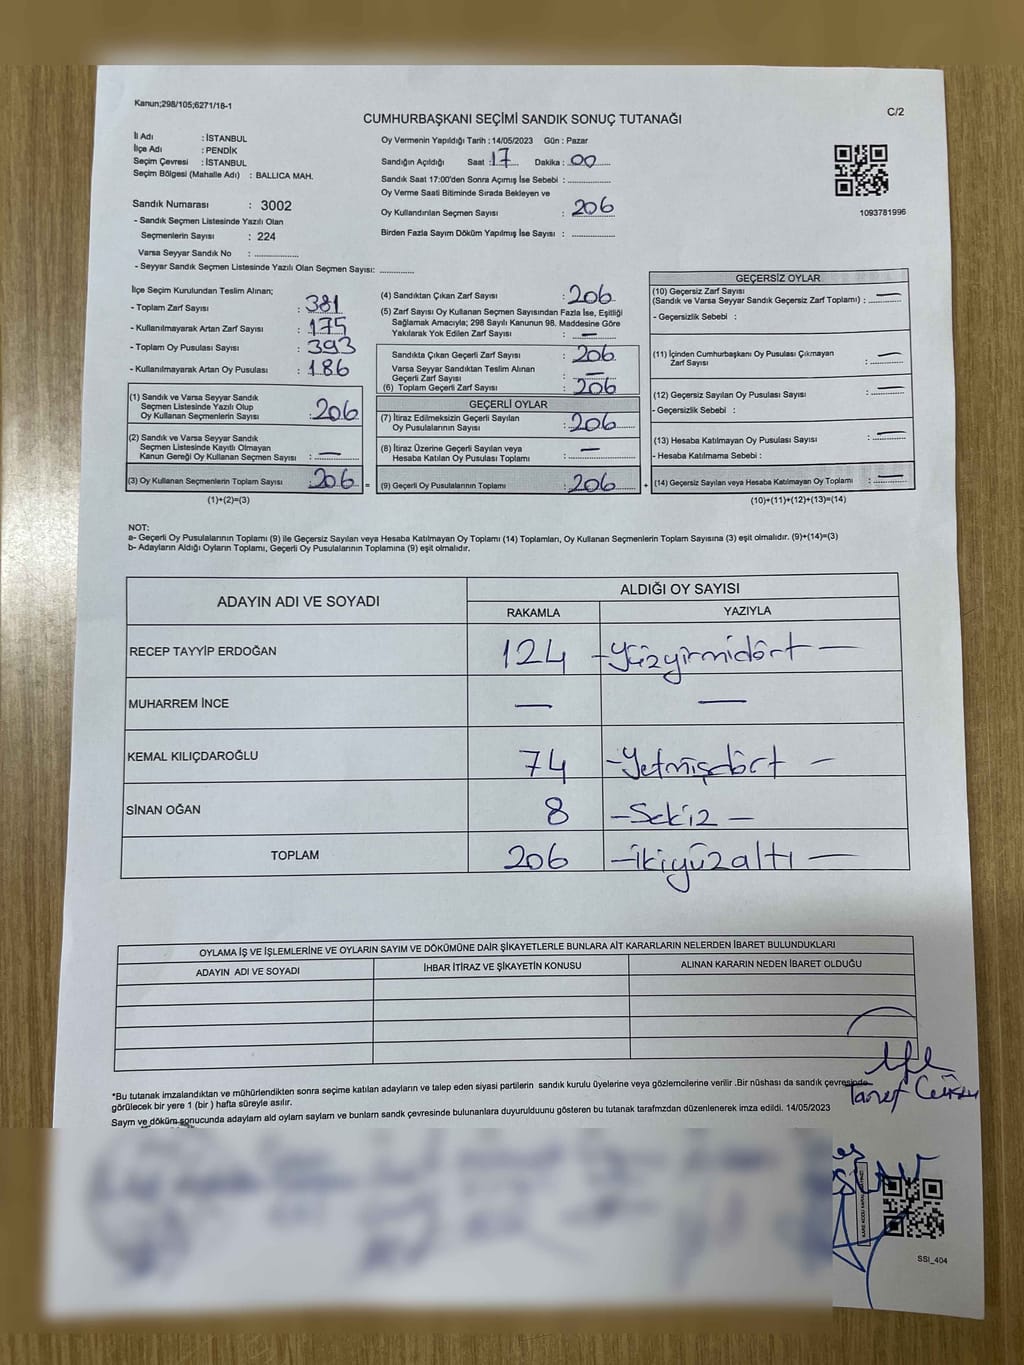 Kanun;298/105;6271/16-1
C/2
CUMHURBAŞKANI SEÇİMİ SANDIK SONUÇ TUTANAĞI
İl Adı : İSTANBUL
İlçe Adı : PENDİK
Seçim Çevresi : İSTANBUL
Seçim Bölgesi (Mahalle Adı) : BALLICA MAH.
Sandık Numarası : 3002
- Sandık Seçmen Listesinde Yazılı Olan
Seçmenlerin Sayısı : 224
Varsa Seyyar Sandık No : ..............
- Seyyar Sandık Seçmen Listesinde Yazılı Olan Seçmen Sayısı: ............
Oy Vermenin Yapıldığı Tarih : 14/05/2023 Gün : Pazar
Sandığın Açıldığı Saat : 17 Dakika : 00
Sandık Saat 17:00'den Sonra Açımış İse Sebebi : ..............
Oy Verme Saati Bitiminde Sırada Bekleyen ve
Oy Kullandırılan Seçmen Sayısı : 206
Birden Fazla Sayım Döküm Yapılmış İse Sayısı : ..............
1093781996
İlçe Seçim Kurulundan Teslim Alınan;
- Toplam Zarf Sayısı : 381
- Kullanılmayarak Artan Zarf Sayısı : 175
- Toplam Oy Pusulası Sayısı : 393
- Kullanılmayarak Artan Oy Pusulası : 186
(1) Sandık ve Varsa Seyyar Sandık
Seçmen Listesinde Yazılı Olup
Oy Kullanan Seçmenlerin Sayısı : 206
(2) Sandık ve Varsa Seyyar Sandık
Seçmen Listesinde Kayıtlı Olmayan
Kanun Gereği Oy Kullanan Seçmen Sayısı : —
(3) Oy Kullanan Seçmenlerin Toplam Sayısı : 206 =
(1)+(2)=(3)
(4) Sandıktan Çıkan Zarf Sayısı : 206
(5) Zarf Sayısı Oy Kullanan Seçmen Sayısından Fazla İse, Eşitliği
Sağlamak Amacıyla; 298 Sayılı Kanunun 98. Maddesine Göre
Yakılarak Yok Edilen Zarf Sayısı : —
Sandıkta Çıkan Geçerli Zarf Sayısı : 206
Varsa Seyyar Sandıktan Teslim Alınan
Geçerli Zarf Sayısı : —
(6) Toplam Geçerli Zarf Sayısı : 206
GEÇERLİ OYLAR
(7) İtiraz Edilmeksizin Geçerli Sayılan
Oy Pusulalarının Sayısı : 206
(8) İtiraz Üzerine Geçerli Sayılan veya
Hesaba Katılan Oy Pusulası Toplamı : —
(9) Geçerli Oy Pusulalarının Toplamı : 206 +
GEÇERSİZ OYLAR
(10) Geçersiz Zarf Sayısı
(Sandık ve Varsa Seyyar Sandık Geçersiz Zarf Toplamı) : —
- Geçersizlik Sebebi :
(11) İçinden Cumhurbaşkanı Oy Pusulası Çıkmayan
Zarf Sayısı : —
(12) Geçersiz Sayılan Oy Pusulası Sayısı : —
- Geçersizlik Sebebi :
(13) Hesaba Katılmayan Oy Pusulası Sayısı : —
- Hesaba Katılmama Sebebi :
(14) Geçersiz Sayılan veya Hesaba Katılmayan Oy Toplamı : —
(10)+(11)+(12)+(13)=(14)
NOT:
a- Geçerli Oy Pusulalarının Toplamı (9) ile Geçersiz Sayılan veya Hesaba Katılmayan Oy Toplamı (14) Toplamları, Oy Kullanan Seçmenlerin Toplam Sayısına (3) eşit olmalıdır. (9)+(14)=(3)
b- Adayların Aldığı Oyların Toplamı, Geçerli Oy Pusulalarının Toplamına (9) eşit olmalıdır.
ADAYIN ADI VE SOYADI ALDIĞI OY SAYISI
RAKAMLA YAZIYLA
RECEP TAYYİP ERDOĞAN 124 -Yüzyirmidört —
MUHARREM İNCE — —
KEMAL KILIÇDAROĞLU 74 -Yetmişdört —
SİNAN OĞAN 8 -Sekiz —
TOPLAM 206 -İkiyüzaltı —
OYLAMA İŞ VE İŞLEMLERİNE VE OYLARIN SAYIM VE DÖKÜMÜNE DAİR ŞİKAYETLERLE BUNLARA AİT KARARLARIN NELERDEN İBARET BULUNDUKLARI
ADAYIN ADI VE SOYADI İHBAR İTİRAZ VE ŞİKAYETİN KONUSU ALINAN KARARIN NEDEN İBARET OLDUĞU
*Bu tutanak imzalandıktan ve mühürlendikten sonra seçime katılan adayların ve talep eden siyasi partilerin sandık kurulu üyelerine veya gözlemcilerine verilir .Bir nüshası da sandık çevresinde
görülecek bir yere 1 (bir ) hafta süreyle asılır.
Saym ve döküm sonucunda adaylam ald oylam saylam ve bunlam sandk çevresinde bulunanlara duyurulduunu gösteren bu tutanak tarafmzdan düzenlenerek imza edildi. 14/05/2023
SSI_404